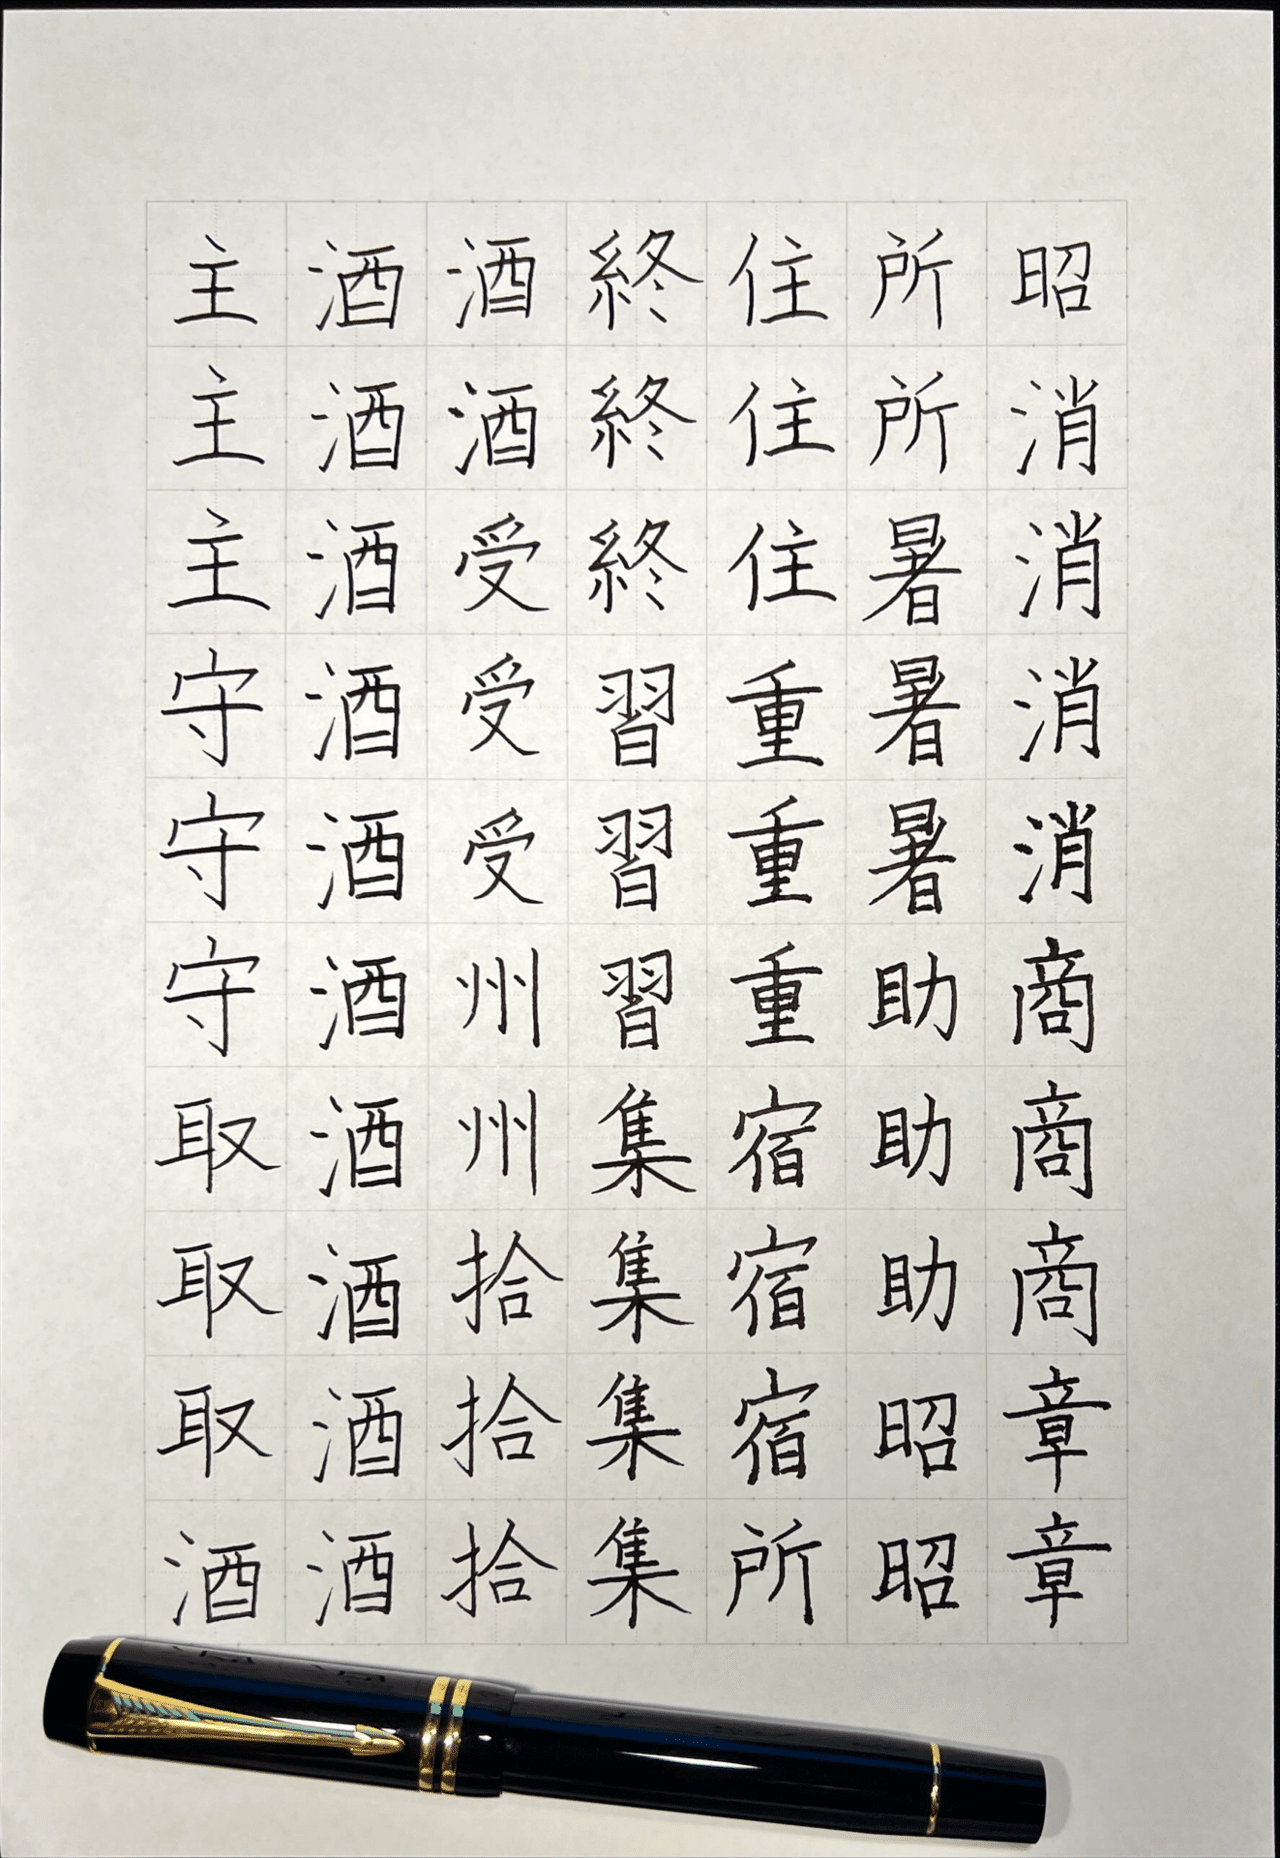 主主主守守守取取取酒
酒酒酒酒酒酒酒酒酒酒
酒酒受受受州州拾拾拾
終終終習習習集集集集
住住住重重重宿宿宿所
所所暑暑暑助助助昭昭
昭消消消消商商商章章